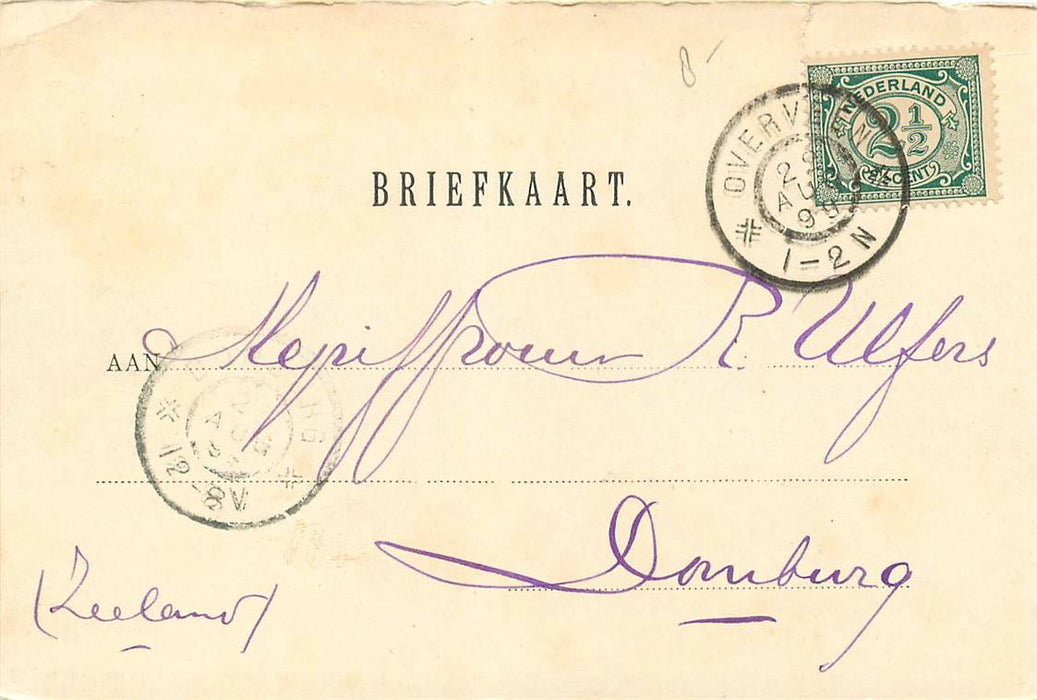 8-
NEDERLAND
2 1/2
2½ CENT
OVERVEEN
AUG
1-2N
BRIEFKAART.
AAN Mejuffrouw R. Ulfers
AUG
12-8V
Domburg
(Zeeland)